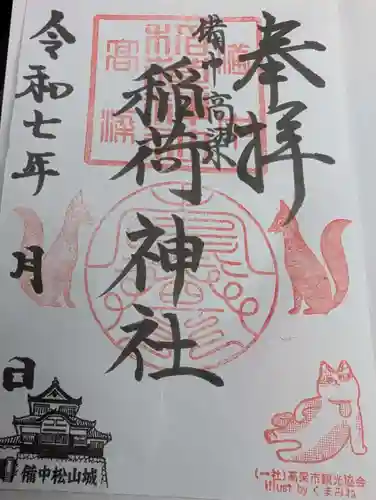 奉拝
備中高梁
稲荷神社
令和七年
月
日
備中松山城
(一社)高梁市観光協会
illust by くまみね